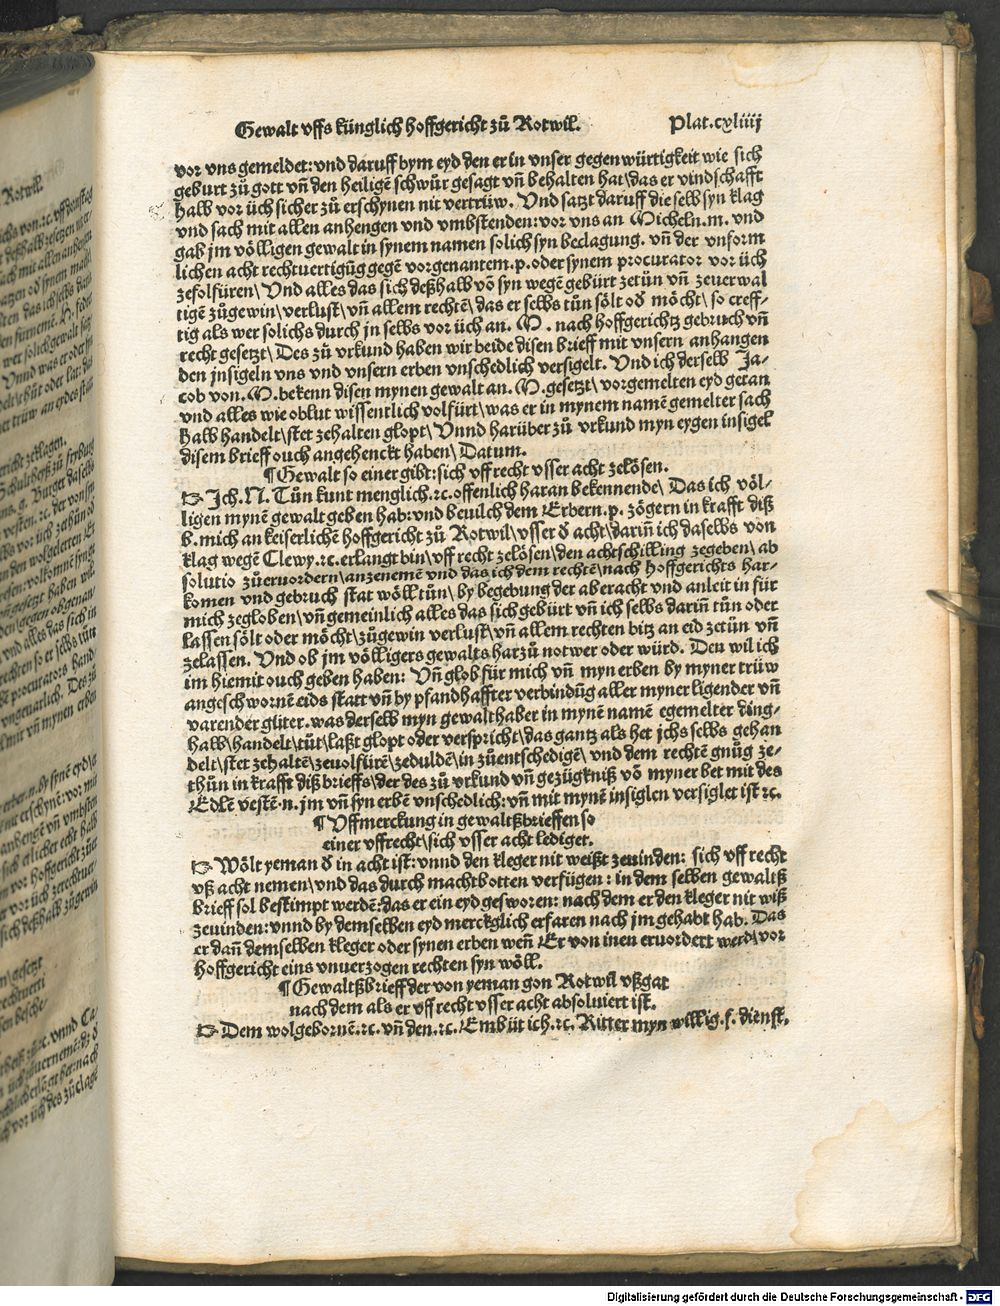 Gewalt vffs künglich hoffgericht zů Rotwil. Plat.cxliiij
vor vns gemeldet: vnd daruff bym eyd den er in vnser gegenwürtigkeit wie sich
geburt zů gott vñ den heiligẽ schwůr gesagt vñ behalten hat\ das er vindschafft
halb vor üch sicher zů erschynen nit vertrüw. Vnd satzt daruff die selb syn klag
vnd sach mit allen anhengen vnd vmbstenden: vor vns an Micheln .m. vnd
gab jm völligen gewalt in synem namen solich syn beclagung. vñ der vnform
lichen acht rechtuertigũg gegẽ vorgenantem .p. oder synem procurator vor üch
zefolfüren\ Vnd alles das sich deßhalb võ syn wegẽ gebürt zetůn vñ zeuerwal
tigẽ zůgewin\ verlust\ vñ allem rechtẽ\ das er selbs tůn sölt oď möcht\ so creff-
tig als wer solichs durch jn selbs vor üch an. M. nach hoffgerichtz gebruch vñ
recht gesetzt\ Des zů vrkund haben wir beide disen brieff mit vnsern anhangen
den jnsigeln vns vnd vnsern erben vnschedlich versigelt. Vnd ich derselb Ja-
cob von .M. bekenn disen mynen gewalt an .M. gesetzt\ vorgemelten eyd getan
vnd alles wie oblut wissentlich volfürt\ was er in mynem namẽ gemelter sach
halb handelt\ stet zehalten glopt\ Vnnd harüber zů vrkund myn eygen insigel
disem brieff ouch angehenckt haben\ Datum.
¶ Gewalt so einer gibt: sich vff recht vsser acht zelösen.
☞ Jch .N. Tůn kunt menglich .ꝛc. offenlich haran bekennende\ Das ich völ-
ligen mynẽ gewalt geben hab: vnd beuilch dem Erbern .p. zögern in krafft diß
b. mich an keiserlichẽ hoffgericht zů Rotwil\ vsser ď acht\ darin̄ ich daselbs von
klag wegẽ Clewy .ꝛc. erlangt bin\ vff recht zelösen\ den achtschilling zegeben\ ab
solutio zůeruordern\ anzenemẽ vnd das ich dem rechtẽ\ nach hoffgerichts har-
komen vnd gebruch stat wöll tůn\ by begebung der aberacht vnd anleit in für
mich zegloben\ vñ gemeinlich alles das sich gebürt vñ ich selbs darin̄ tůn oder
lassen sölt oder möcht\ zůgewin verlust\ vñ allem rechten bitz an eid zetůn vñ
zelassen. Vnd ob jm völligers gewalts harzů not wer oder würd. Den wil ich
im hiemit ouch geben haben: Vñ glob für mich vñ myn erben by myner trüw
angeschwornẽ eids statt vñ by pfandhaffter verbindũg aller myner ligender vñ
varender gůter. was derselb myn gewalthaber in mynẽ namẽ egemelter ding-
halb\ handelt\ tůt\ laßt glopt oder verspricht\ das gantz als het jchs selbs gehan
delt\ stet zehaltẽ\ zeuolfürẽ\ zeduldẽ\ in zůentschedigẽ\ vnd dem rechtẽ gnůg ze-
thůn in krafft diß brieffs\ der des zů vrkund vñ gezügkniß võ myner bet mit des
Edlẽ vestẽ .n. jm vñ syn erbẽ vnschedlich: vñ mit mynẽ insiglen versiglet ist ꝛc.
¶ Vffmerckung in gewaltßbrieffen so
einer vffrecht\ sich vsser acht lediget.
☞ Wölt yeman ď in acht ist: vnnd den kleger nit weißt zeuinden: sich vff recht
vß acht nemen\ vnd das durch machtbotten verfügen: in dem selben gewaltß
brieff sol bestimpt werdẽ: das er ein eyd gesworen: nach dem er den kleger nit wiß
zeuinden: vnnd by demselben eyd mercklich erfaren nach jm gehabt hab. Das
er dañ demselben kleger oder synen erben weñ Er von inen eruordert werd\ vor
hoffgericht eins vnuerzogen rechten syn wöll.
¶ Gewaltßbrieff der von yeman gon Rotwil vßgat
nach dem als er vff recht vsser acht absoluiert ist.
☞ Dem wolgebornẽ .ꝛc. vñ den .ꝛc. Embüt ich .ꝛc. Ritter myn willig .f. dienst,
Digitalisierung gefördert durch die Deutsche Forschungsgemeinschaft - DFG